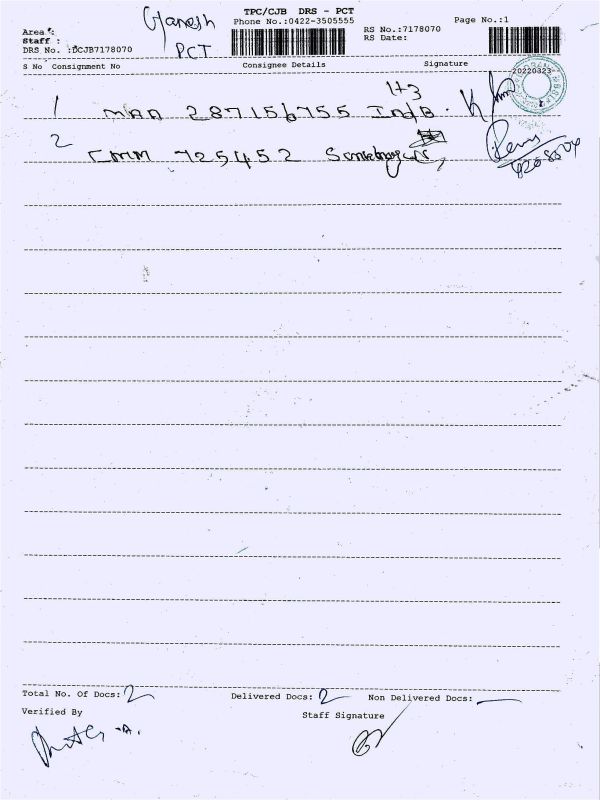 TPC/CJB DRS - PCT
Ganesh
Phone No.:0422-3505555
Page No.:1
Area :
RS No.:7178070
Staff :
PCT
RS Date:
DRS No. :DCJB7178070
S No Consignment No Consignee Details Signature
20220323
1+3
1 MAA 287156755 IndB.
2 CMM 725452
Total No. Of Docs: 2 Delivered Docs: 2 Non Delivered Docs: —
Verified By
Staff Signature